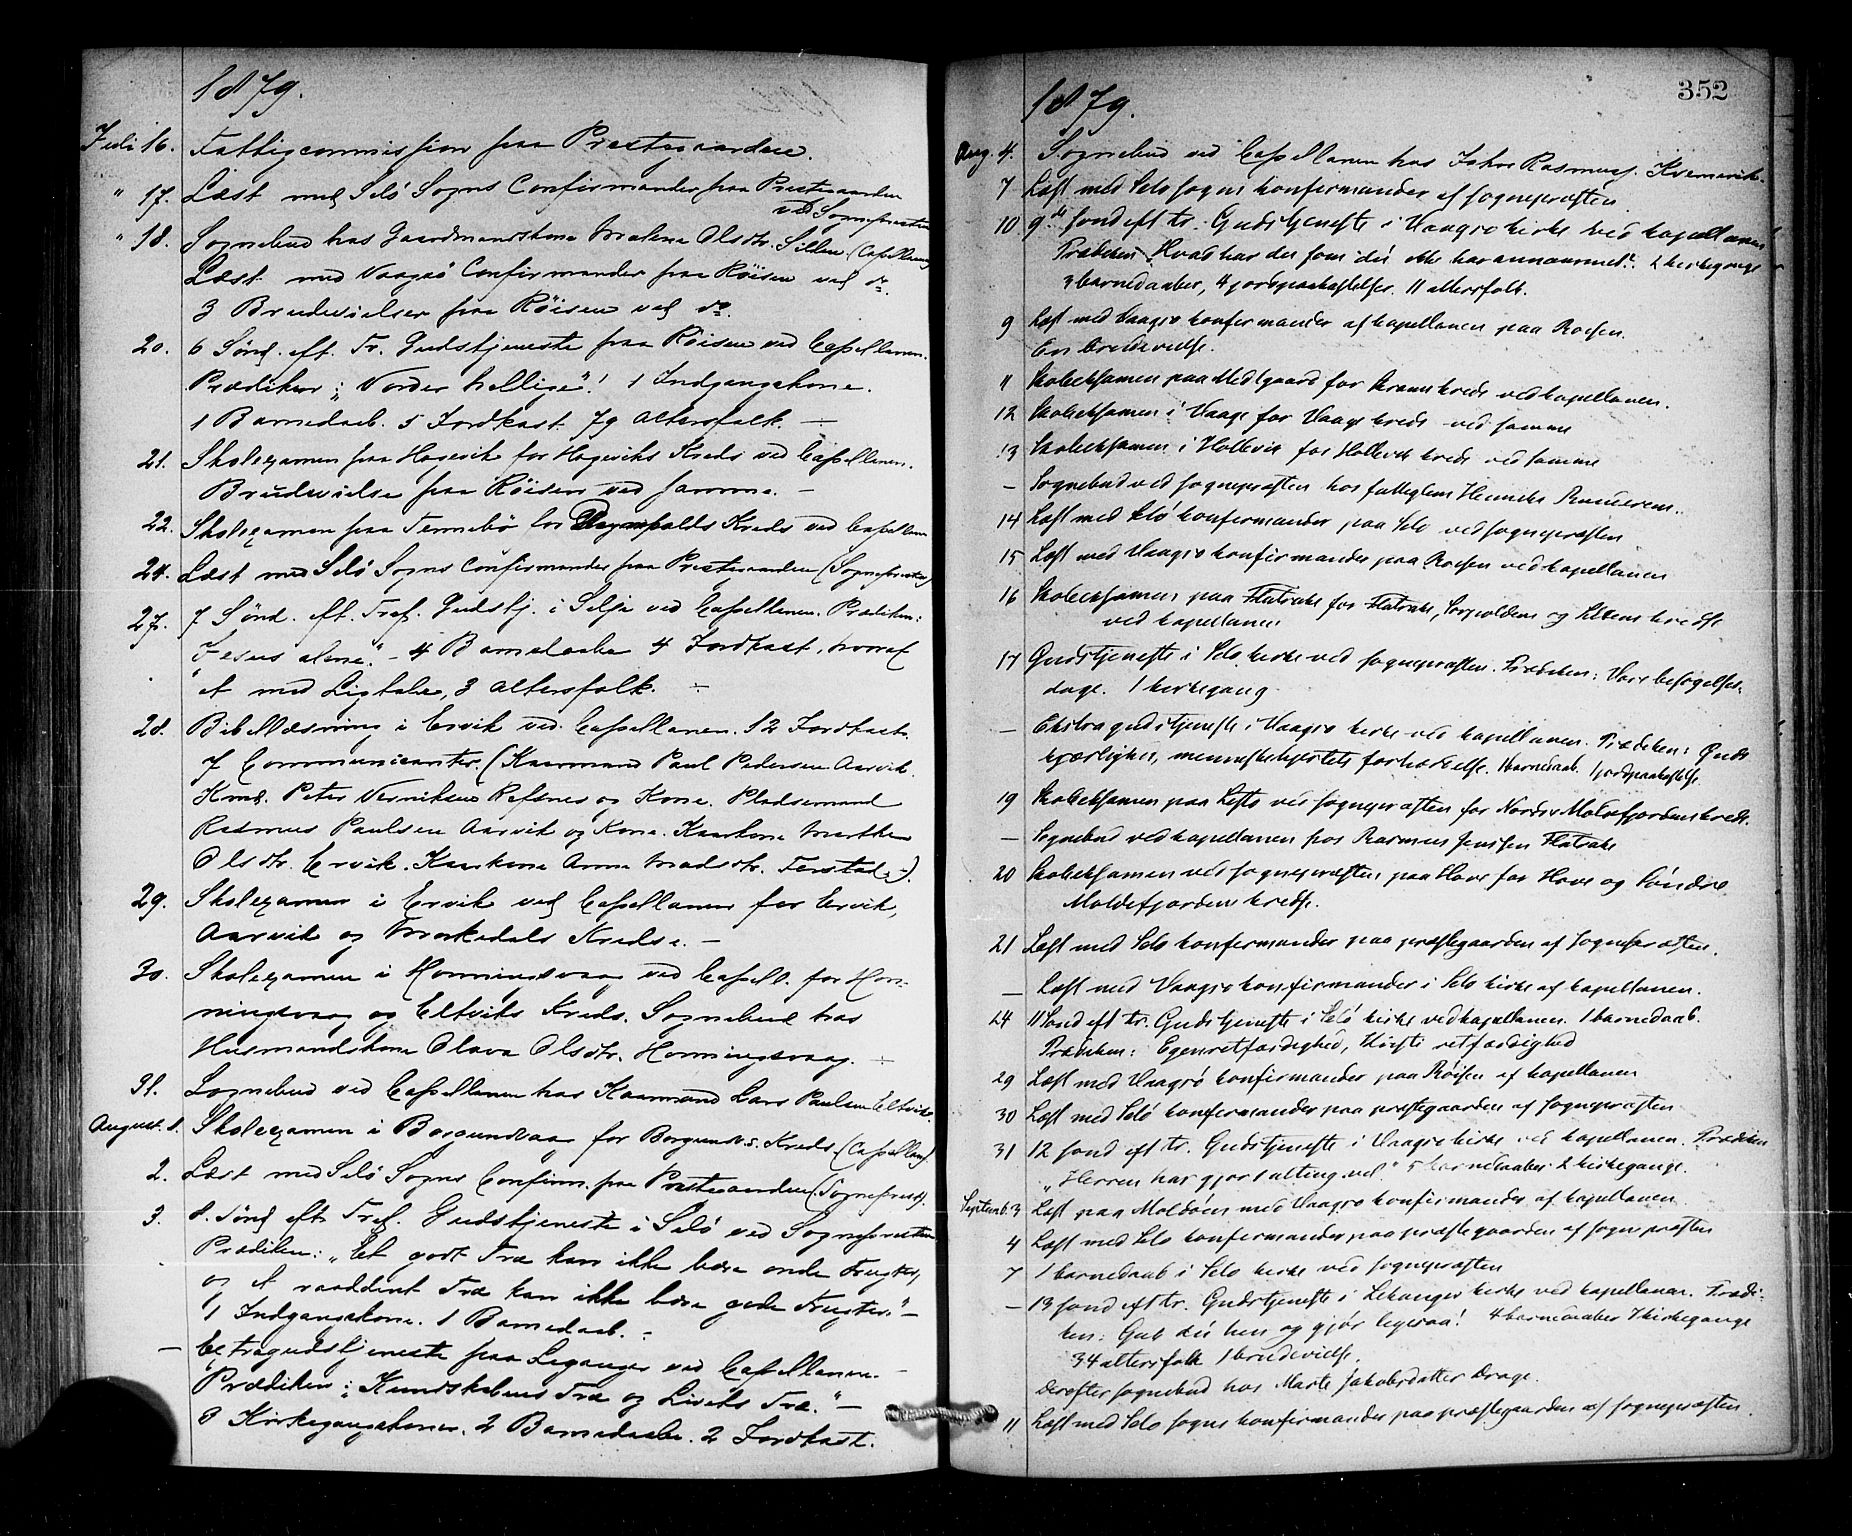 1879.
Juli 16. Fattigcommission paa Prestegaarden.
" 17. Læst med Selö Sogns Confirmander paa Prestegaarden
ved Sognepresten
" 18. Sognebud hos Gaardmandskone Malene Olsdtr. Sillen (Capellanen)
Læst med Vaagsö Confirmander paa Röisen ved do.
3 Brudevielser paa Röisen ved do.
20. 6 Sönd. eft. Tr. Gudstjeneste paa Röisen ved Capellanen.
Prædiken: "Vorder hellige"! 1 Indgangskone.
1 Barnedaab. 5 Jordkast. 79 Altersfolk. —
21. Skoleexamen paa Hagevik for Hageviks Kreds ved Capellanen.
Brudevielse paa Röisen ved samme. —
22. Skoleexamen paa Tennebö for Degnepolds Kreds ved Capellanen
24. Læst med Selö Sogns Confirmander paa Prestegaarden (Sognepresten)
27. 7 Sönd. eft. Tref. Gudstj. i Selje ved Capellanen. Prædiken:
"Jesus alene". – 4 Barnedaabe 4 Jordkast, hvoraf
et med Ligtale, 3 Altersfolk. ÷
28. Bibellæsning i Ervik ved Capellanen. 12 Jordkast.
7 Communicanter. (Kaarmand Paul Pedersen Aarvik.
Kmd. Peter Refsnes og Kone. Pladsemand
Rasmus Paulsen Aarvik og Kone. Kaarkone Marthe
Olsdtr. Ervik. Kaarkone Anne Madsdtr. ).
29. Skoleexamen i Ervik ved Capellanen for Ervik,
Aarvik og Morkedals Kredse. —
30. Skoleexamen i Honningsvaag ved Capell. for Hon-
ningsvaag og Eltviks Kreds. Sognebud hos
Husmandskone Olava Olsdtr. Honningsvaag. ÷
31. Sognebud ved Capellanen hos Kaarmand Lars Paulsen Eltvik.
August. 1. Skoleexamen i Borgundvaag for Borgundv.s. Kreds. (Capellan).
2. Læst med Selö Sogns Confirm. paa Prestegaarden (Sognepræst).
3. 8. Sönd eft. Tref. Gudstjeneste i Selö ved Sognepresten
Prædiken: "Et godt Træ kan ikke bære onde Frugter,
og et raaddent Træ kan ikke bære gode Frugter." —
1 Indgangskone. 1 Barnedaab. —
— Extragudstjeneste paa Leganger ved Capellanen. —
Prædiken: "Kundskabens Træ og Livets Træ." —
3 Kirkegangskoner. 2 Barnedaabe. 2 Jordkast.
352
1879.
Aug. 4. Sognebud ved Capellanen hos Jakob Rasmus.
7 Læst med Selö sogns konfirmander af sognepræsten
10 9de sönd eft tr. Gudstjeneste i Vaagsö kirke ved kapellanen
Prædiken Hvad har du som du ikke har annammet? 2 kirkegange
3 barnedaaber, 4 jordpaakastelser. 11 altersfolk.
9 Læst med Vaagsö konfirmander af kapellanen paa Röisen.
En brudevielse.
11 Skoleeksamen paa Medlgaard for kreds ved kapellanen.
12 Skoleeksamen i Vaage for Vaage kreds ved samme
13 Skoleeksamen i Hollevik for Hollevik kreds ved samme
– Sognebud ved sognepræsten hos fattiglem
14 Læst med Selö konfirmander paa Selö ved sognepræsten
15 Læst med Vaagsö konfirmander paa Röisen ved kapellanen
16 Skoleeksamen paa Flatrake for Flatrake, og kredse
ved kapellanen
17 Gudstjeneste i Selö kirke ved sognepræsten. Prædiken: Vore besögelses-
dage. 1 kirkegang
– Ekstragudstjeneste i Vaagsö kirke ved kapellanen. Prædiken: Guds
kjærlighed, menneskehjertets forhærdelse. 1 barnedaab. 1 jordpaakastelse.
19 Skoleeksamen paa Lefto ved sognepræsten for Nordre Moldefjordens kreds.
– Sognebud ved kapellanen hos Rasmus Jensen Flatrake
20 Skoleeksamen ved sognepræsten paa Hove for Hove og Söndre
Moldefjordens kredse.
21 Læst med Selö konfirmander paa præstegaarden af sognepræsten.
— Læst med Vaagsö konfirmander i Selö kirke af kapellanen.
24 11 sönd eft tr. Gudstjeneste i Selö kirke ved kapellanen. 1 barnedaab.
Prædiken: Egenretfærdighed, Kristi retfærdighed
29 Læst med Vaagsö konfirmander paa Röisen af kapellanen
30 Læst med Selö konfirmander paa præstegaarden af sognepræsten
31 12 sönd eft tr. Gudstjeneste i Vaagsö kirke ved kapellanen. Prædiken
"Herren har gjort alting vel" 5 barnedaaber 2 kirkegange.
Septemb. 3 Læst paa Moldöen med Vaagsö konfirmander af kapellanen
4 Læst med Selö konfirmander paa præstegaarden af sognepræsten
7 1 barnedaab i Selö kirke ved sognepræsten
– 13 sönd eft tr. Gudstjeneste i Lekanger kirke ved kapellanen. Prædi-
ken: Gak du hen og gjör ligesaa! 4 barnedaaber 7 kirkegange
34 altersfolk 1 brudevielse.
Derefter sognebud hos Marte Jakobsdatter Drage.
11 Læst med Selö sogns konfirmander paa præstegaarden af sognepræsten.